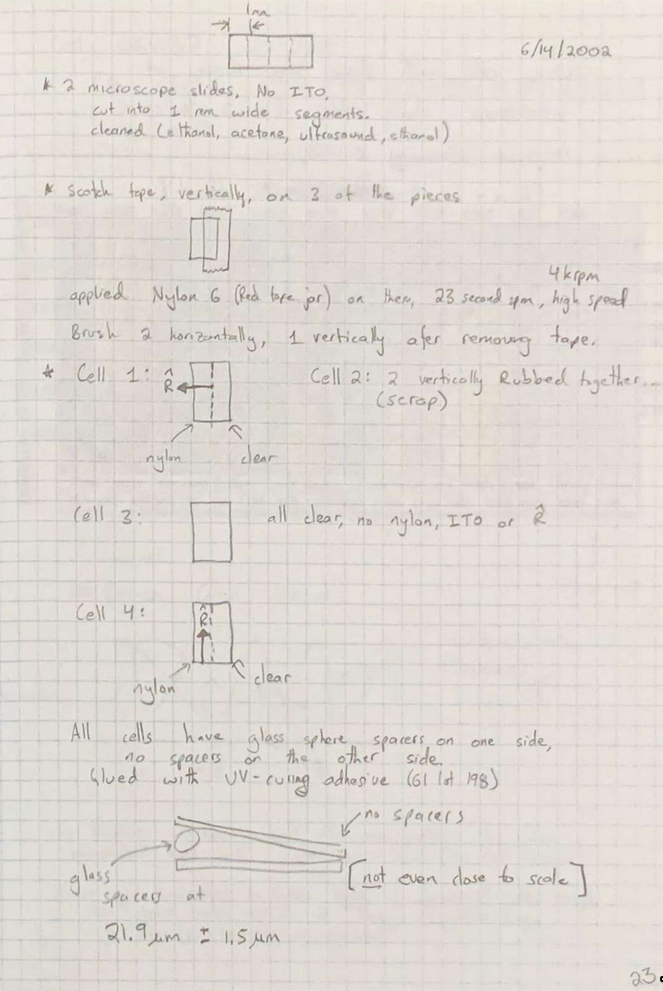 1mm
6/14/2002
* 2 microscope slides, No ITO,
cut into 1 mm wide segments.
cleaned (ethanol, acetone, ultrasound, ethanol)
* Scotch tape, vertically, on 3 of the pieces
4krpm
applied Nylon 6 (Red tape jar) on them, 23 second spin, high speed
Brush 2 horizontally, 1 vertically afer removing tape.
* Cell 1: R̂ Cell 2: 2 vertically Rubbed together...
(scrap)
nylon clear
Cell 3: all clear, no nylon, ITO or R̂
Cell 4: R̂
nylon clear
All cells have glass sphere spacers on one side,
no spacers on the other side.
Glued with UV-curing adhesive (61 lot 198)
no spacers
glass
spacers at
[not even close to scale]
21.9 μm ± 1.5 μm
23